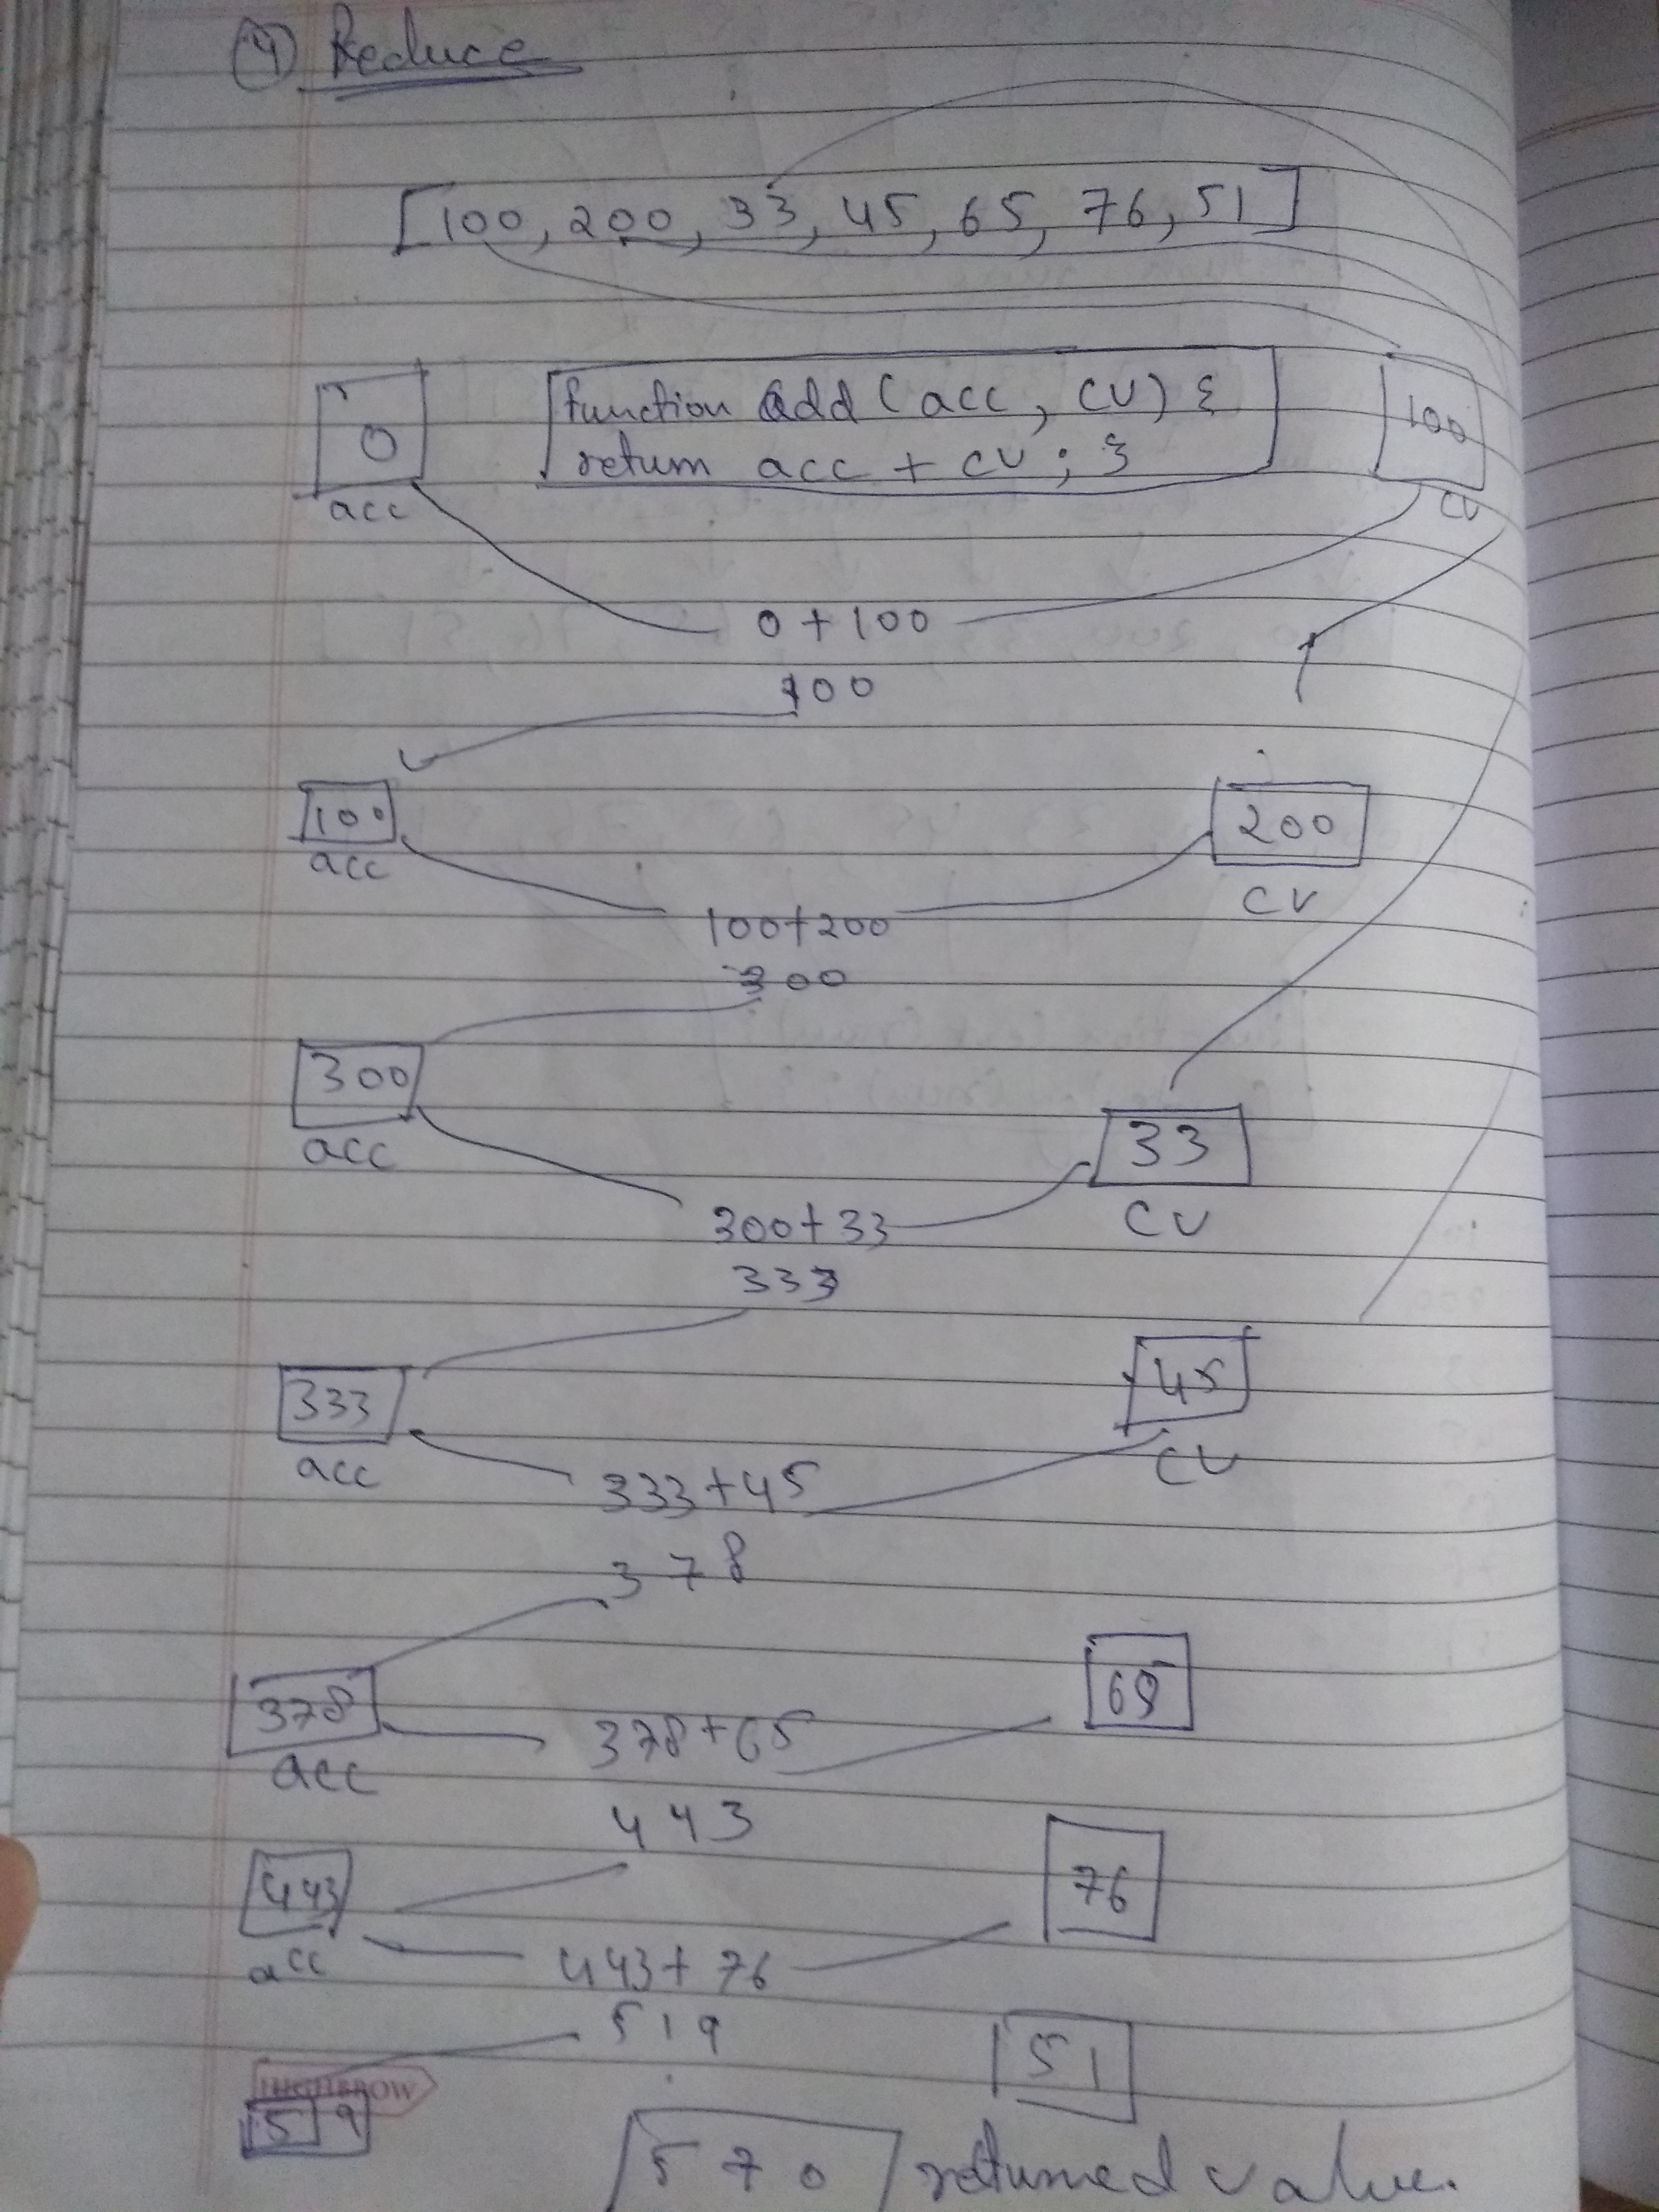 ④ Reduce
[100, 200, 33, 45, 65, 76, 51]
function Add (acc, CV) {
return acc + CV ; }
0
acc
100
CV
0 + 100
100
100
acc
200
CV
100+200
300
300
acc
33
CV
300+33
333
333
acc
45
CV
333+45
378
378
acc
65
378+65
443
443
acc
76
443+76
519
51
HIGHBROW
519
570 returned value.